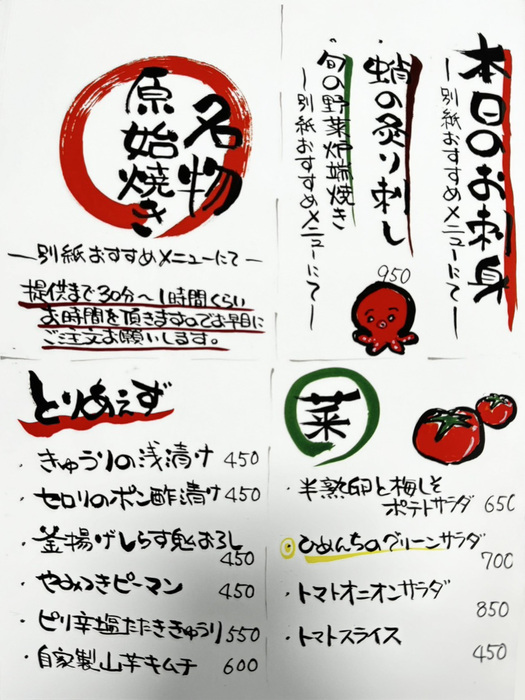 本日のお刺身
―別紙おすすめメニューにて―
・蛸の炙り刺し
950
・旬の野菜炉端焼き
―別紙おすすめメニューにて―
名物
原始焼き
―別紙おすすめメニューにて―
提供まで30分〜1時間くらい
お時間を頂きますのでお早目に
ご注文お願いします。
とりあえず
・きゅうりの浅漬け 450
・セロリのポン酢漬け 450
・釜揚げしらす鬼おろし
450
・やみつきピーマン 450
・ピリ辛塩たたききゅうり 550
・自家製山芋キムチ 600
菜
・半熟卵と梅しそ
ポテトサラダ 650
・ひめんちのグリーンサラダ
700
・トマトオニオンサラダ
850
・トマトスライス
450